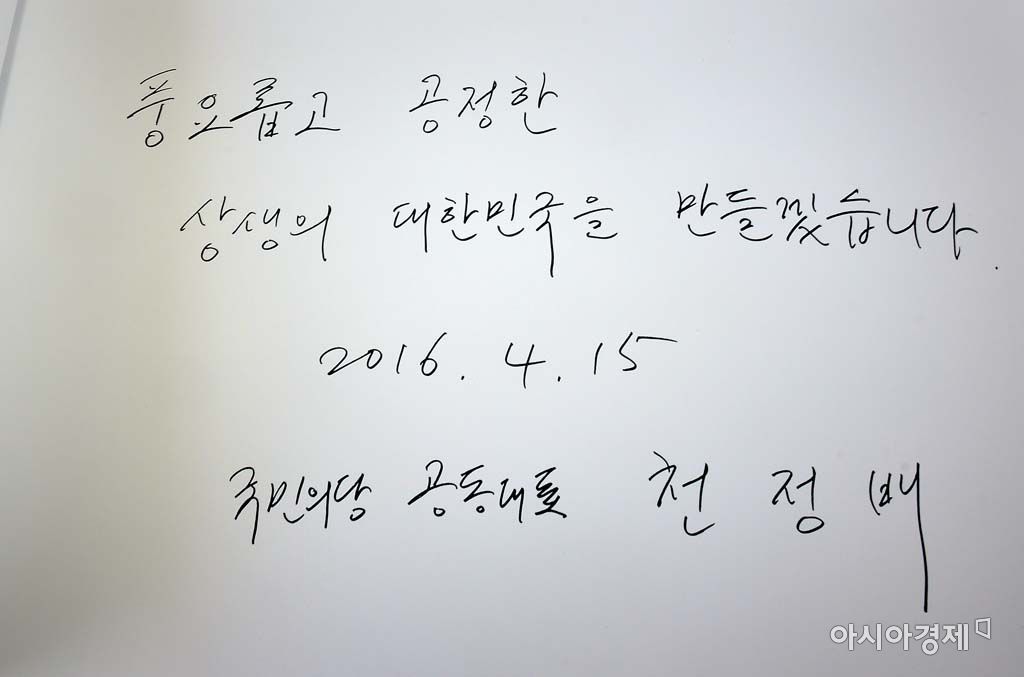 풍요롭고 공정한
상생의 대한민국을 만들겠습니다.
2016. 4. 15
국민의당 공동대표 천정배
아시아경제